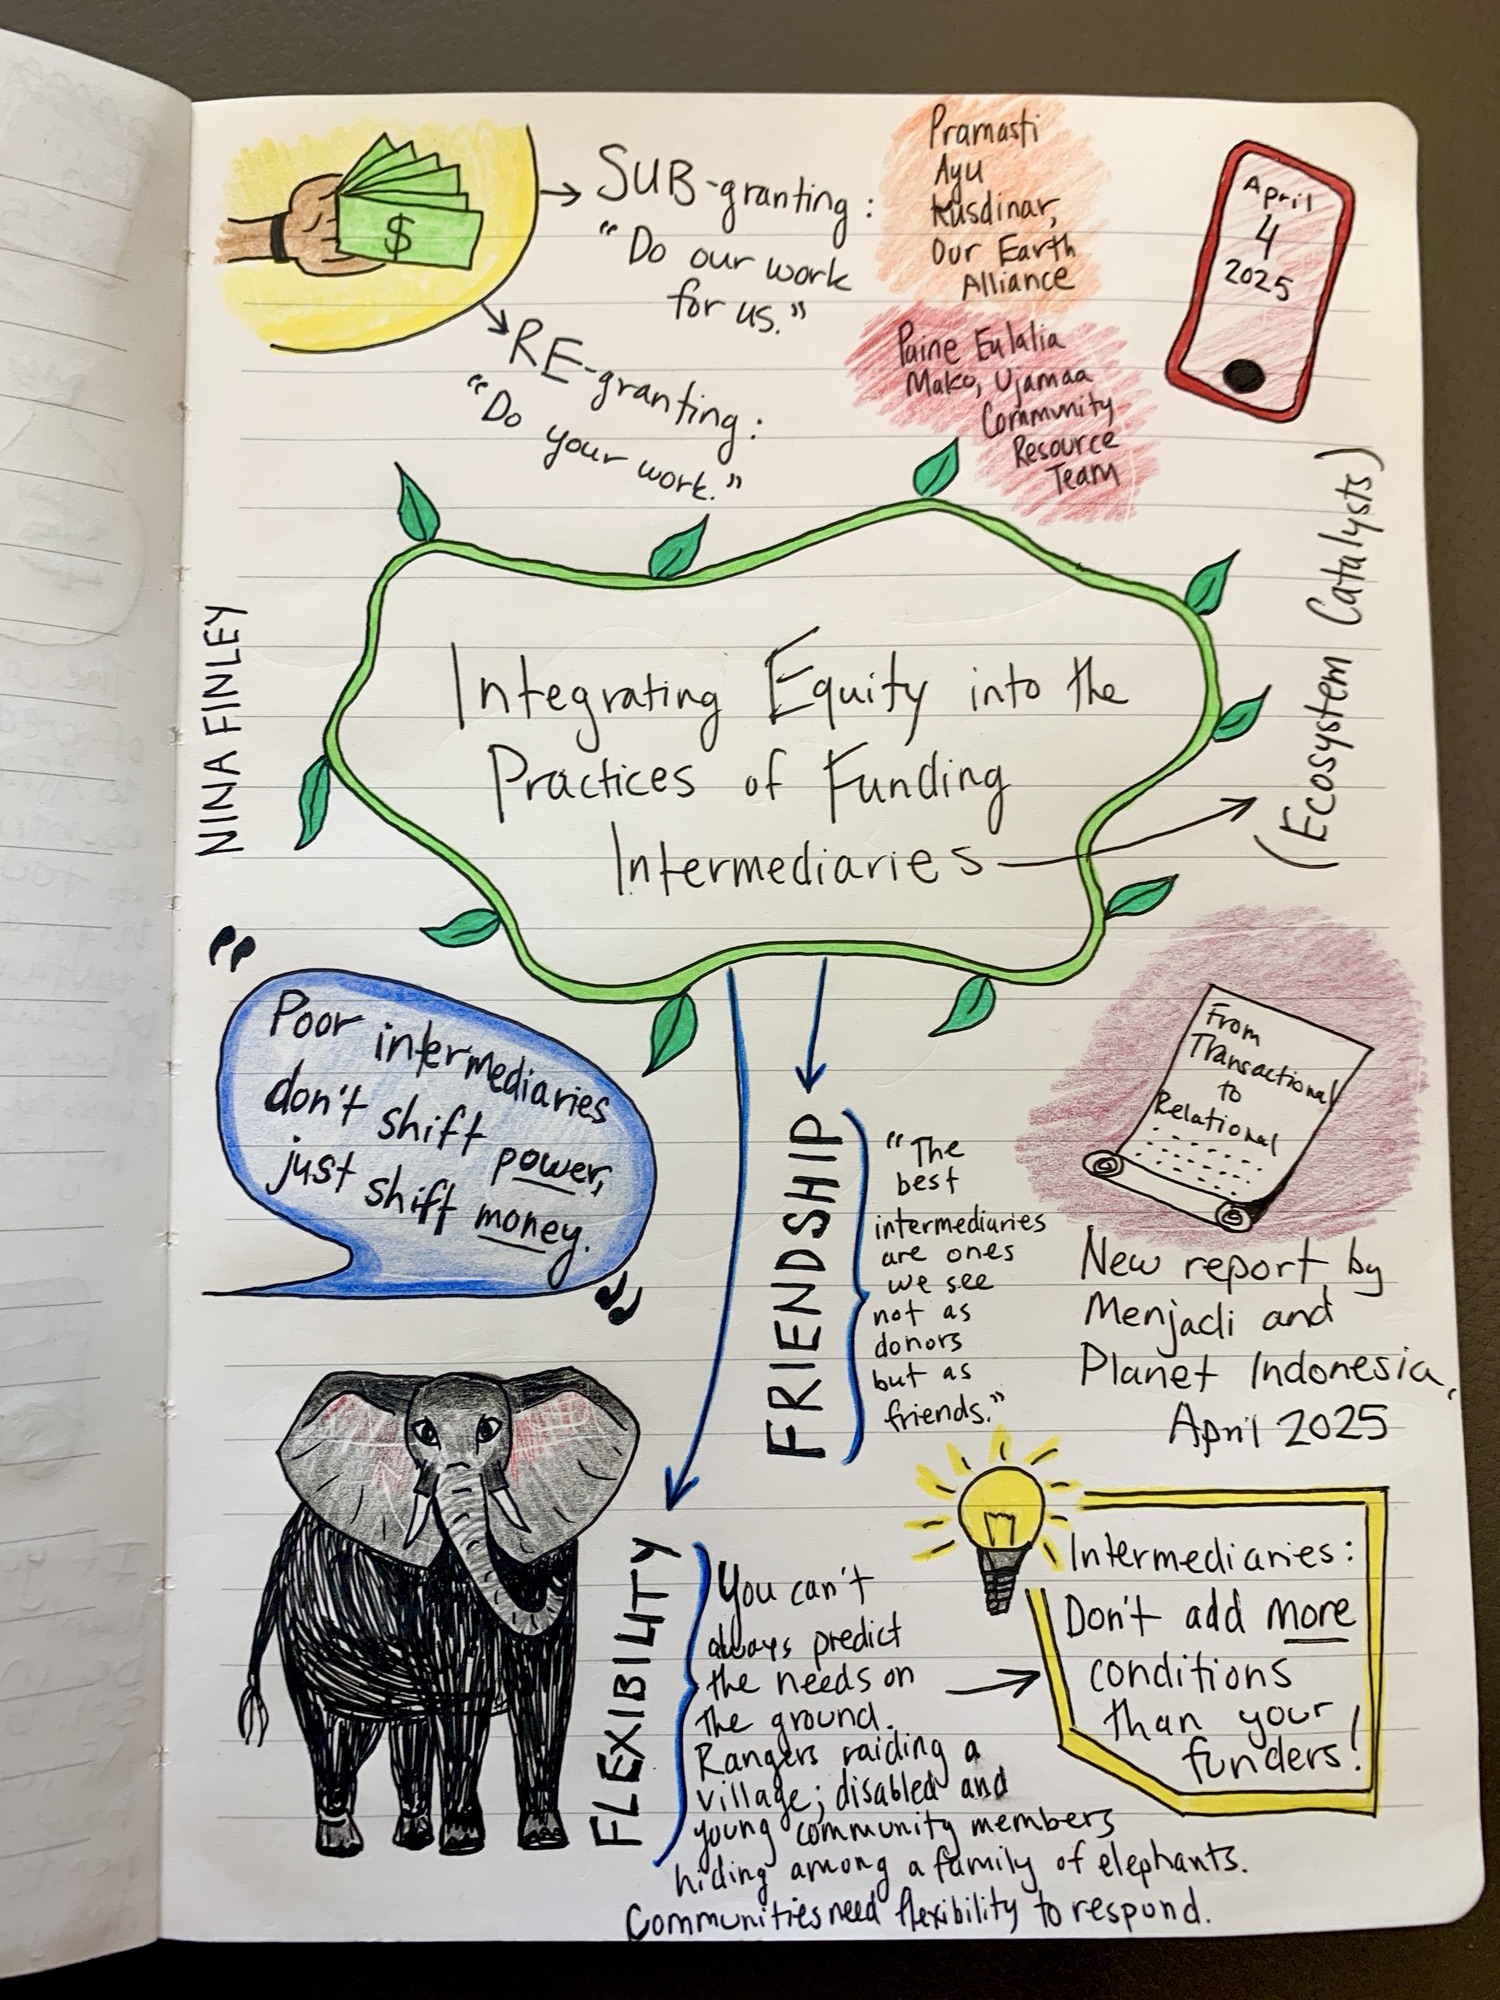 $
SUB-granting:
"Do our work
for us."
RE-granting:
"Do your work."
Pramasti
Ayu
Kusdinar,
Our Earth
Alliance
Paine Eulalia
Mako, Ujamaa
Community
Resource
Team
April
4
2025
NINA FINLEY
Integrating Equity into the
Practices of Funding
Intermediaries
(Ecosystem Catalysts)
"Poor intermediaries
don't shift power,
just shift money."
FRIENDSHIP
"The
best
intermediaries
are ones
we see
not as
donors
but as
friends."
From
Transactional
to
Relational
New report by
Menjadi and
Planet Indonesia,
April 2025
FLEXIBILITY
You can't
always predict
the needs on
the ground.
Rangers raiding a
village; disabled and
young community members
hiding among a family of elephants.
Communities need flexibility to respond.
Intermediaries:
Don't add more
conditions
than your
funders!